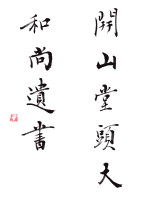 開山堂頭大
和尚遺書